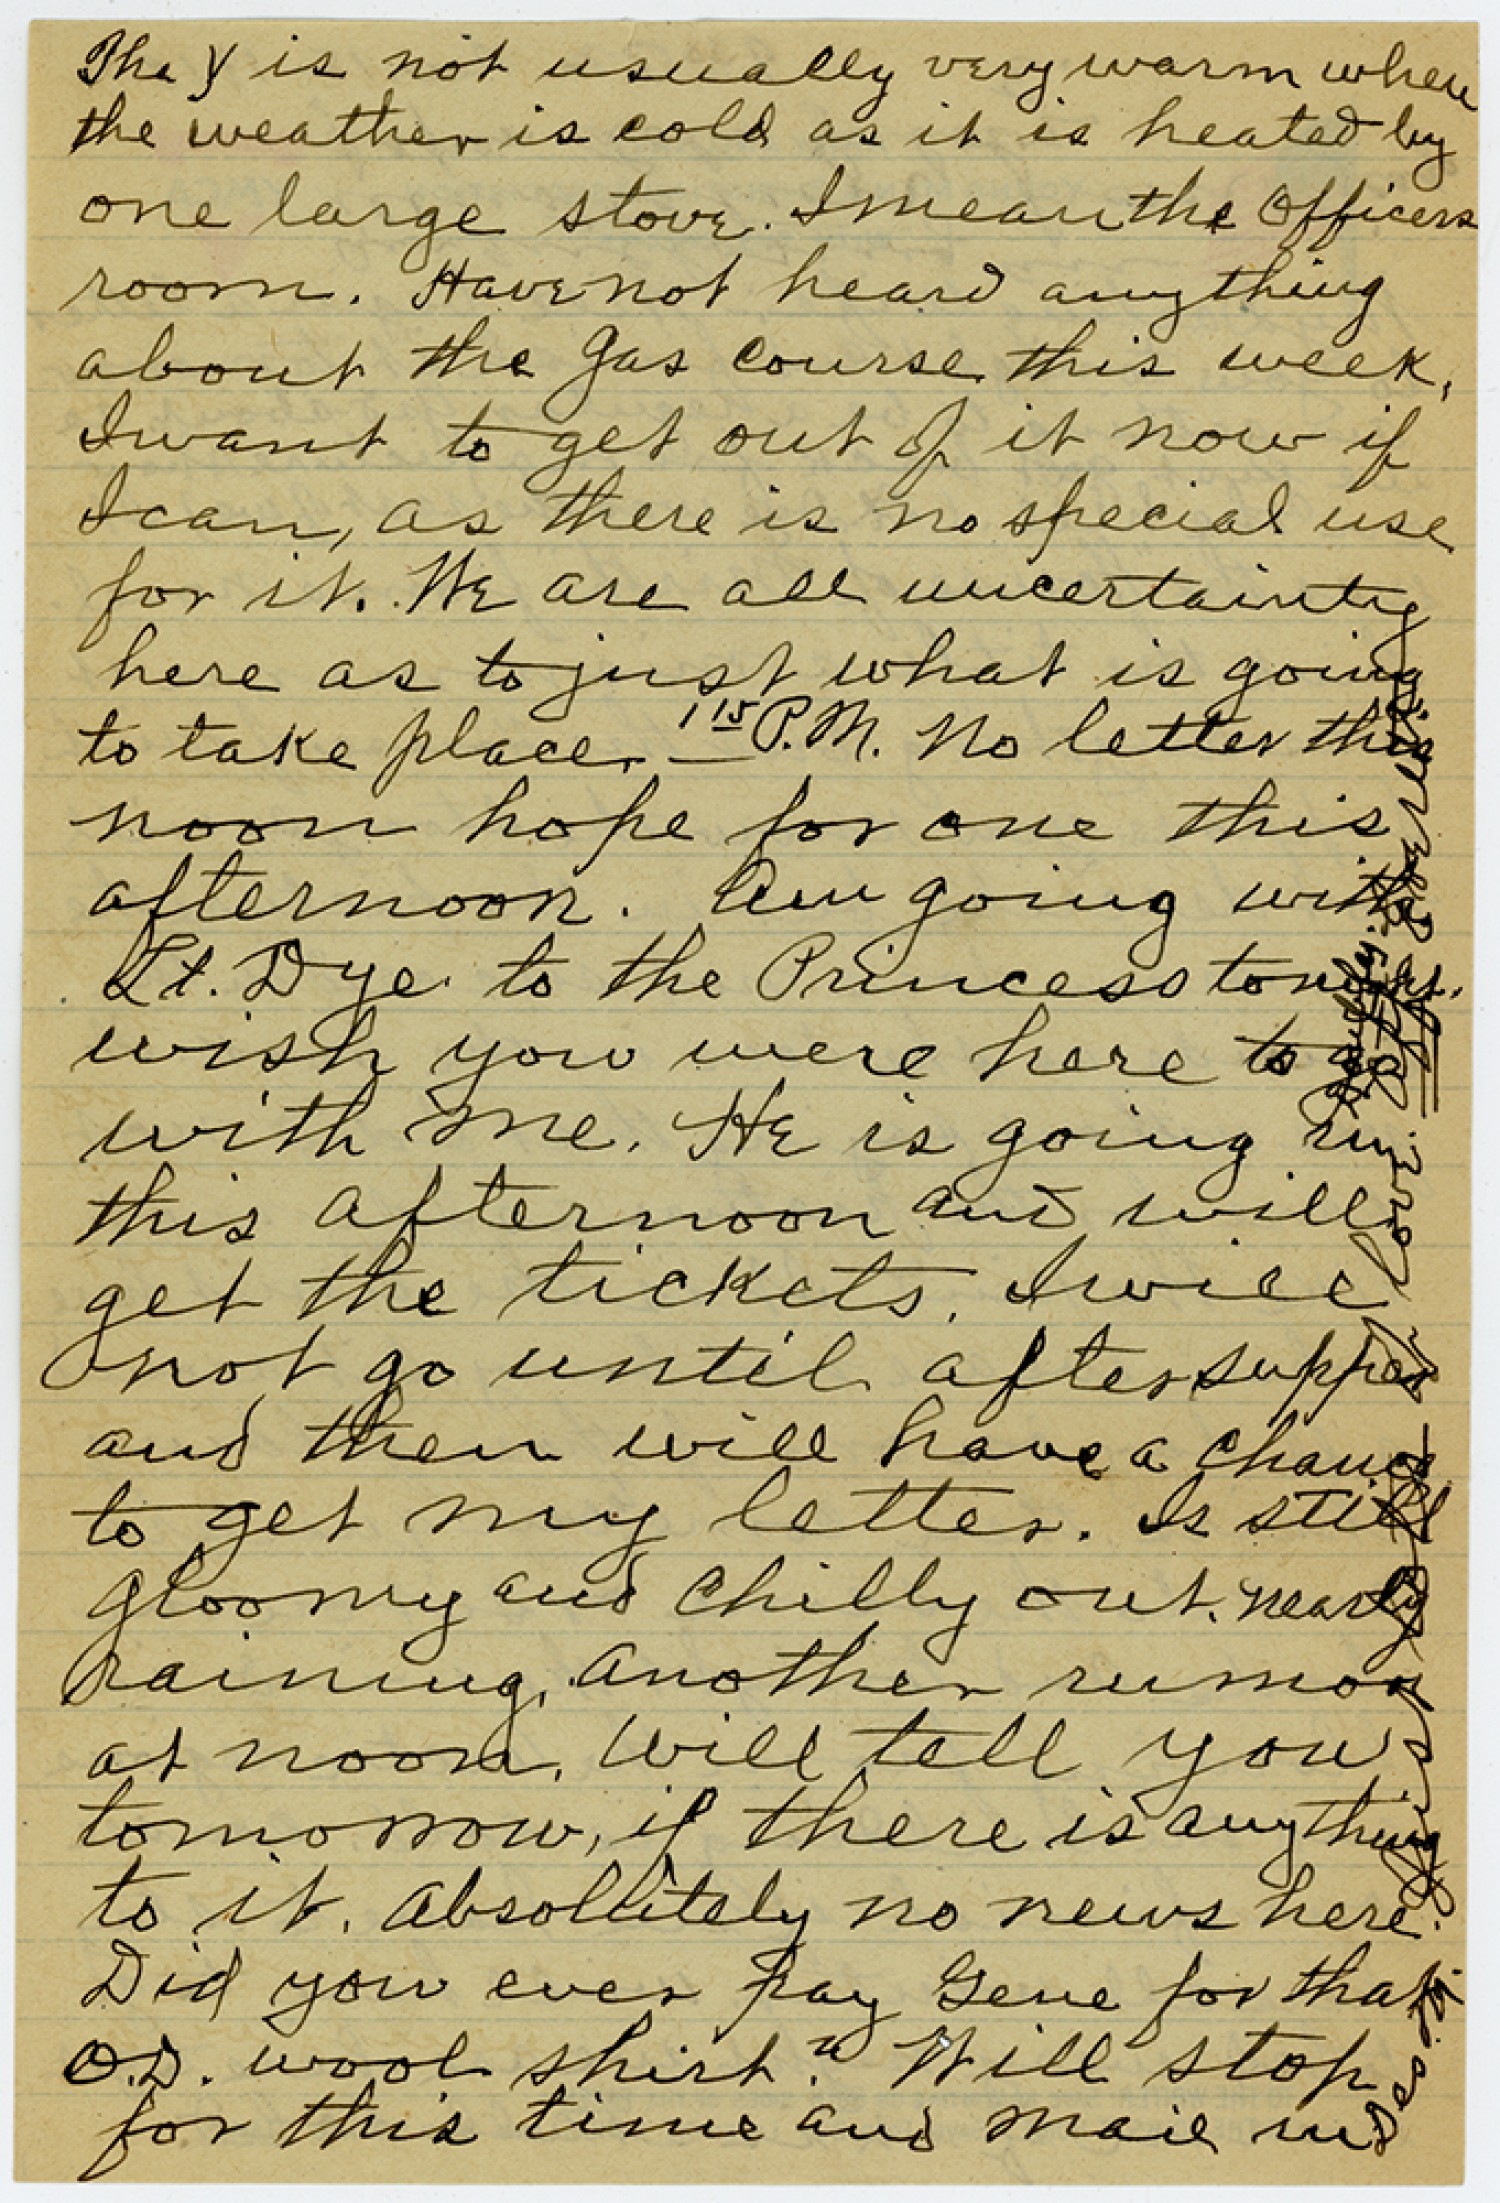 The Y is not usually very warm when
the weather is cold as it is heated by
one large stove. I mean the Officers
room. Have not heard anything
about the gas course this week,
I want to get out of it now if
I can, as there is no special use
for it. We are all uncertainty
here as to just what is going
to take place. 1 15 P.M. No letter this
noon hope for one this
afternoon. Am going with
Lt. Dye to the Princess tonight.
wish you were here to go
with me. He is going in
this afternoon and will
get the tickets. I will
not go until after supper
and then will have a chance
to get my letter. Is still
gloomy and chilly out. nearly
raining. Another rumor
at noon. Will tell you
tomorrow, if there is anything
to it. Absolutely no news here.
Did you ever pay Gene for that
O.D. wool shirt? Will stop
for this time and mail in
love.